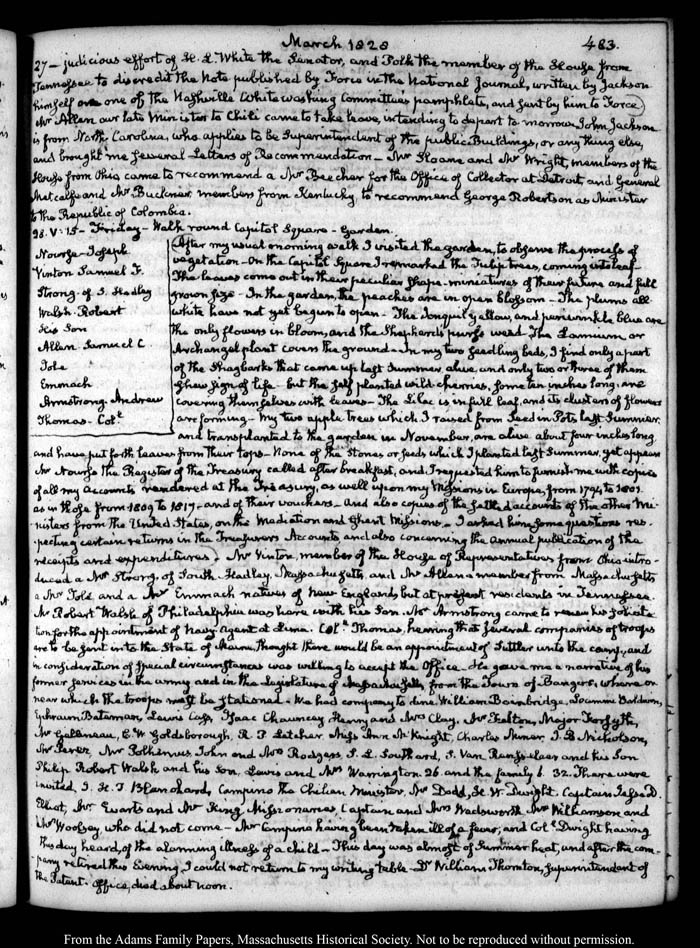 March 1828
483.
27 – judicious effort of H. L White the Senator, and Polk the member of the House from
Tennessee to discredit the Note published by Force in the National Journal, written by Jackson
himself on one of the Nashville Whitewashing Committee's pamphlets, and sent by him to Force)
Mr Allen our late Minister to Chili came to take leave, intending to depart to morrow. John Jackson
is from North Carolina, who applies to be Superintendent of the public Buildings, or any thing else,
and brought me several Letters of Recommendation – Mr Sloane and Mr Wright, members of the
House from Ohio came to recommend a Mr Beecher for the Office of Collector at Detroit, and General
Metcalfe and Mr Buckner members from Kentucky, to recommend George Robertson as Minister
to the Republic of Colombia.
28. V: 15 – Friday – Walk round Capitol Square – Garden.
Nourse Joseph
Vinton Samuel F.
Strong of S. Hadley
Walsh Robert
His Son
Allen Samuel C
Emmach
Armstrong. Andrew
Thomas – Coll
After my usual morning walk I visited the garden, to observe the process of
vegetation – On the Capitol Square I remarked the Tulip trees, coming into leaf –
The leaves come out in their peculiar shape – miniatures of their future and full
grown size – In the garden, the peaches are in open blossom – The plums all
white have not yet begun to open – The Jonquil yellow, and periwinkle blue are
the only flowers in bloom, and the Shepherd's purse weed – The Lamium or
Archangel plant covers the ground – In my two seedling beds, I find only a part
of the Shagbarks that came up last Summer, alive, and only two or three of them
shew sign of life – but the self planted wild cherries, some ten inches long, are
covering themselves with leaves – The Lilac is in full leaf, and its clusters of flowers
are forming – My two apple trees which I raised from Seed in Pots last Summer,
and transplanted to the garden in November, are alive about four inches long
and have put forth leaves from their tops – None of the Stones or seeds which I planted last Summer, yet appear
Mr Nourse the Register of the Treasury called after breakfast, and I requested him to furnish me with copies
of all my accounts rendered at the Treasury, as well upon my Missions in Europe, from 1794 to 1801.
as in those from 1809 to 1817 – and of their vouchers – And also copies of the settled accounts of the other Mi-
nisters from the United States, on the Mediation and Ghent Missions – I asked him some questions res-
pecting certain returns in the Treasurers Accounts and also concerning the annual publication of the
receipts and expenditures. Mr Vinton, member of the House of Representatives from Ohio intro-
duced a Mr Strong, of South Hadley, Massachusetts, and Mr Allen a member from Massachusetts
a Mr and a Mr Emmach natives of New England, but at present residents in Tennessee.
Mr Robert Walsh of Philadelphia was here with his Son. Mr Armstrong came to renew his solicita-
tion for the appointment of Navy Agent at Lima. Coll Thomas, hearing that several companies of troops
are to be sent into the State of Maine, thought there would be an appointment of Suttler unto the camp, and
in consideration of special circumstances was willing to accept the Office. He gave me a narrative of his
former services in the army and in the Legislature of Massachusetts, from the Town of Bangor, where or
near which the troops must be stationed – We had company to dine. William Bainbridge, Loammi Baldwin,
Ephraim Bateman, Lewis Cass, Isaac Chauncey, Henry and Mrs Clay, Mr Felton, Major Forsyth,
Mr Galleneau, C. W Goldsborough, R. P Letcher, Miss Ann McKnight, Charles Miner, J. B Nicholson,
Mr Perez, Mr Polhemus, John and Mrs Rodgers, S. L Southard, S. Van Rensselaer and his Son
Philip, Robert Walsh and his Son, Lewis and Mrs Warrington. 26. and the family 6. 32. There were
invited, I. H. T Blanchard, Campino the Chilian Minister, Mr Dodd, H. W. Dwight, Captain Jesse D.
Elliot, Mr Evarts and Mr King, Missionaries, Captain and Mrs Wadsworth, Mr Williamson and
Mr Woolsey who did not come – Mr Campino having been taken ill of a fever; and Coll Dwight having
this day heard, of the alarming illness of a child – This day was almost of Summer heat, and after the com-
pany retired this Evening, I could not return to my writing table – Dr William Thornton, Superintendent of
the Patent-office, died about noon.
From the Adams Family Papers, Massachusetts Historical Society. Not to be reproduced without permission.